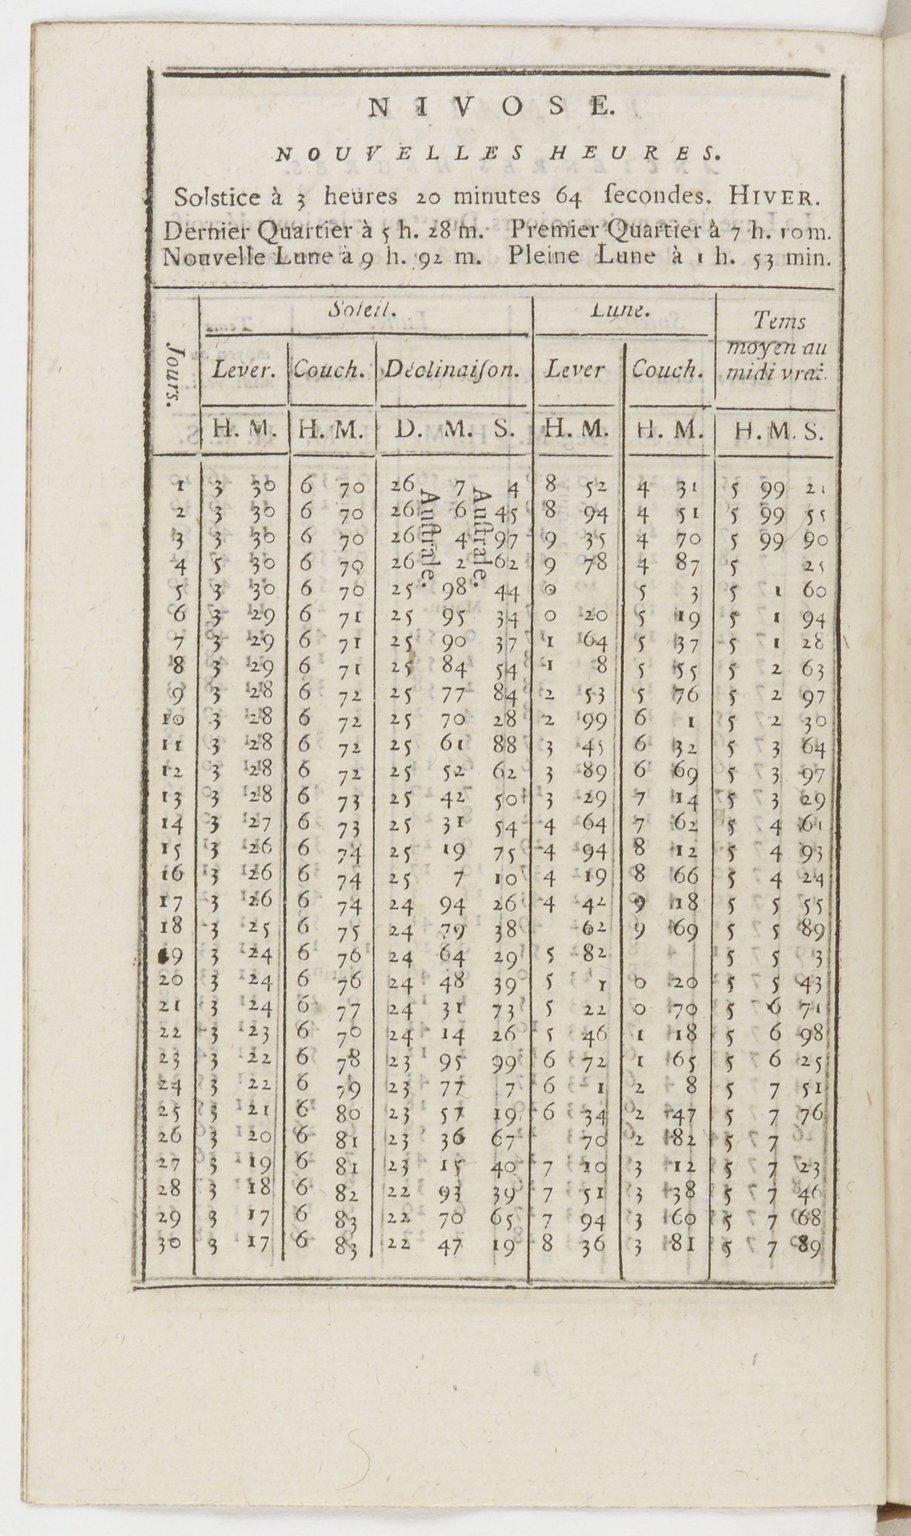 NIVOSE.
NOUVELLES HEURES.
Solstice à 3 heures 20 minutes 64 ſecondes. HIVER.
Dernier Quartier à 5 h. 28 m. Premier Quartier à 7 h. 10 m.
Nouvelle Lune à 9 h. 92 m. Pleine Lune à 1 h. 53 min.
Jours. Soleil. Lune. Tems moyen au midi vrai.
Lever. Couch. Déclinaiſon. Lever Couch.
H. M. H. M. D. M. S. H. M. H. M. H. M. S.
Auſtrale. Auſtrale.
1 3 30 6 70 26 7 4 8 52 4 31 5 99 21
2 3 30 6 70 26 6 45 8 94 4 51 5 99 55
3 3 30 6 70 26 4 97 9 35 4 70 5 99 90
4 5 30 6 70 26 2 62 9 78 4 87 5 25
5 3 30 6 70 25 98 44 0 5 3 5 1 60
6 3 29 6 71 25 95 34 0 20 5 19 5 1 94
7 3 29 6 71 25 90 37 1 64 5 37 5 1 28
8 3 29 6 71 25 84 54 1 8 5 55 5 2 63
9 3 28 6 72 25 77 84 2 53 5 76 5 2 97
10 3 28 6 72 25 70 28 2 99 6 1 5 2 30
11 3 28 6 72 25 61 88 3 45 6 32 5 3 64
12 3 28 6 72 25 52 62 3 89 6 69 5 3 97
13 3 28 6 73 25 42 50 3 29 7 14 5 3 29
14 3 27 6 73 25 31 54 4 64 7 62 5 4 61
15 3 26 6 74 25 19 75 4 94 8 12 5 4 93
16 3 26 6 74 25 7 10 4 19 8 66 5 4 24
17 3 26 6 74 24 94 26 4 42 9 18 5 5 55
18 3 25 6 75 24 79 38 62 9 69 5 5 89
19 3 24 6 76 24 64 29 5 82 5 5 3
20 3 24 6 76 24 48 39 5 1 0 20 5 5 43
21 3 24 6 77 24 31 73 5 22 0 70 5 6 71
22 3 23 6 70 24 14 26 5 46 1 18 5 6 98
23 3 22 6 78 23 95 99 6 72 1 65 5 6 25
24 3 22 6 79 23 77 7 6 1 2 8 5 7 51
25 3 21 6 80 23 57 19 6 34 2 47 5 7 76
26 3 20 6 81 23 36 67 70 2 82 5 7
27 3 19 6 81 23 15 40 7 10 3 12 5 7 23
28 3 18 6 82 22 93 39 7 51 3 38 5 7 46
29 3 17 6 83 22 70 65 7 94 3 60 5 7 68
30 3 17 6 83 22 47 19 8 36 3 81 5 7 89